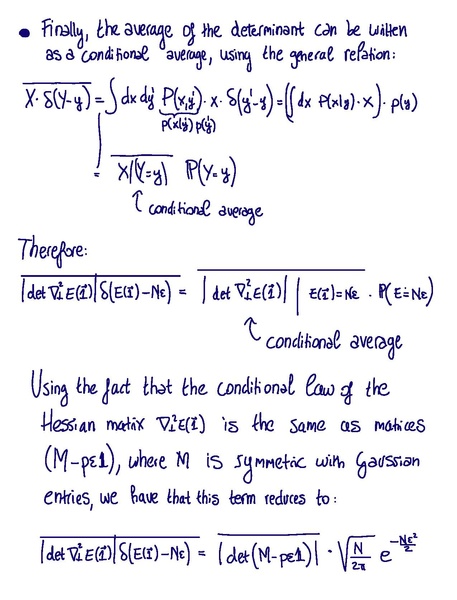 • Finally, the average of the determinant can be written
as a conditional average, using the general relation:
X·δ(Y-y) = ∫ dx dy' P(x,y') · x · δ(y'-y) = (∫ dx P(x|y) · x) · p(y)
P(x|y') p(y')
= X|(Y=y) ℙ(Y=y)
↑ conditional average
Therefore:
|det ∇⊥² E(1⃗)| δ(E(1⃗)-Nε) = |det ∇⊥² E(1⃗)| | E(1⃗)=Nε · ℙ(E=Nε)
↑ conditional average
Using the fact that the conditional law of the
Hessian matrix ∇⊥² E(1⃗) is the same as matrices
(M-pε𝟙), where M is symmetric with Gaussian
entries, we have that this term reduces to:
|det ∇⊥² E(1⃗)| δ(E(1⃗)-Nε) = |det(M-pε𝟙)| · √(N/2π) e^(-Nε²/2)